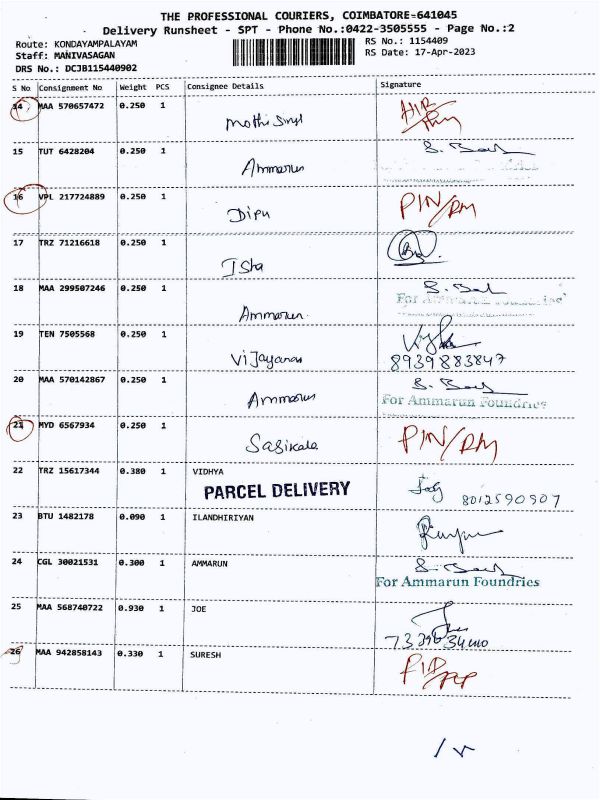 THE PROFESSIONAL COURIERS, COIMBATORE-641045
Delivery Runsheet - SPT - Phone No.:0422-3505555 - Page No.:2
Route: KONDAYAMPALAYAM
RS No.: 1154409
Staff: MANIVASAGAN
RS Date: 17-Apr-2023
DRS No.: DCJB115440902
S No Consignment No Weight PCS Consignee Details Signature
14 MAA 570657472 0.250 1
Mothi Singh
15 TUT 6428204 0.250 1
Ammarun
16 VPL 217724889 0.250 1 PIN/RM
Dipu
17 TRZ 71216618 0.250 1
Isha
18 MAA 299507246 0.250 1
For Ammarun Foundries
Ammarun
19 TEN 7505568 0.250 1
Vijayanan 8939883847
20 MAA 570142867 0.250 1
Ammarun For Ammarun Foundries
21 MYD 6567934 0.250 1 PIN/RM
Sasikala
22 TRZ 15617344 0.380 1 VIDHYA
PARCEL DELIVERY 8012590907
23 BTU 1482178 0.090 1 ILANDHIRIYAN
24 CGL 30021531 0.300 1 AMMARUN
For Ammarun Foundries
25 MAA 568740722 0.930 1 JOE
26 MAA 942858143 0.330 1 SURESH